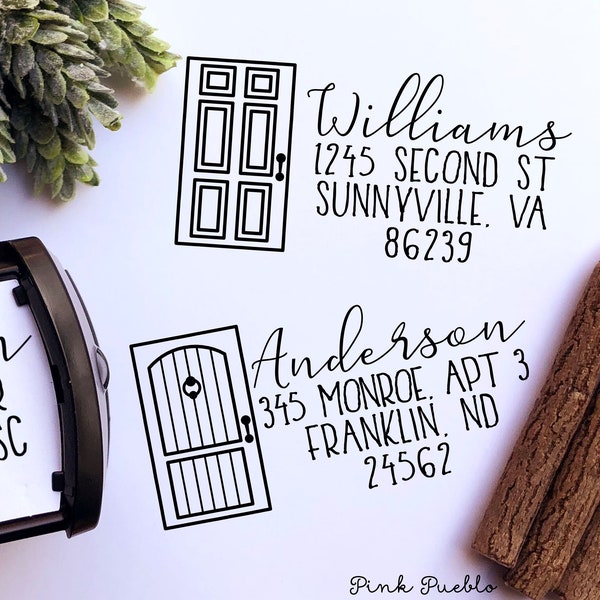 Williams
1245 SECOND ST
SUNNYVILLE, VA
86239
Anderson
345 MONROE, APT 3
FRANKLIN, ND
24562
SC
Pink Pueblo